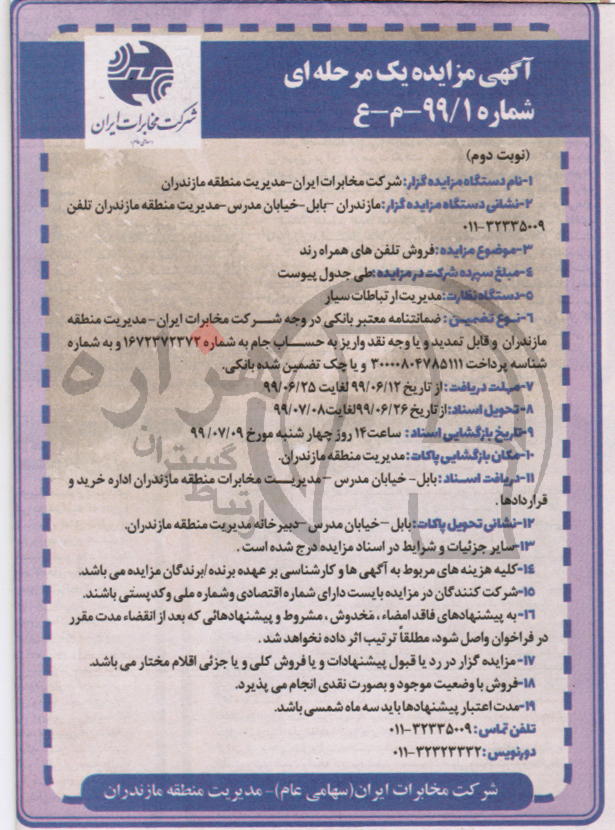 آگهی مزایده یک مرحله ای
شماره ۹۹/۱-م-ع
شرکت مخابرات ایران
(سهامی عام)
(نوبت دوم)
۱-نام دستگاه مزایده گزار: شرکت مخابرات ایران-مدیریت منطقه مازندران
۲-نشانی دستگاه مزایده گزار: مازندران -بابل-خیابان مدرس-مدیریت منطقه مازندران تلفن
۰۱۱-۳۲۳۳۵۰۰۹
۳-موضوع مزایده: فروش تلفن های همراه رند
۴-مبلغ سپرده شرکت در مزایده: طی جدول پیوست
۵-دستگاه نظارت: مدیریت ارتباطات سیار
۶-نوع تضمین: ضمانتنامه معتبر بانکی در وجه شرکت مخابرات ایران- مدیریت منطقه
مازندران و قابل تمدید و یا وجه نقد واریز به حساب جام به شماره ۱۶۷۲۳۷۲۳۷۲ و به شماره
شناسه پرداخت ۳۰۰۰۰۸۰۴۷۸۵۱۱۱ و یا چک تضمین شده بانکی.
۷-مهلت دریافت: از تاریخ ۹۹/۰۶/۱۲ لغایت ۹۹/۰۶/۲۵
۸-تحویل اسناد: از تاریخ ۹۹/۰۶/۲۶ لغایت ۹۹/۰۷/۰۸
۹-تاریخ بازگشایی اسناد: ساعت ۱۴ روز چهار شنبه مورخ ۹۹/۰۷/۰۹
۱۰-مکان بازگشایی پاکات: مدیریت منطقه مازندران.
۱۱-دریافت اسناد: بابل- خیابان مدرس -مدیریت مخابرات منطقه مازندران اداره خرید و
قراردادها.
۱۲-نشانی تحویل پاکات: بابل -خیابان مدرس-دبیرخانه مدیریت منطقه مازندران.
۱۳-سایر جزئیات و شرایط در اسناد مزایده درج شده است.
۱۴-کلیه هزینه های مربوط به آگهی ها و کارشناسی بر عهده برنده/برندگان مزایده می باشد.
۱۵-شرکت کنندگان در مزایده بایست دارای شماره اقتصادی وشماره ملی وکدپستی باشند.
۱۶-به پیشنهادهای فاقد امضاء، مخدوش، مشروط و پیشنهادهائی که بعد از انقضاء مدت مقرر
در فراخوان واصل شود، مطلقاً ترتیب اثر داده نخواهد شد.
۱۷-مزایده گزار در رد یا قبول پیشنهادات و یا فروش کلی و یا جزئی اقلام مختار می باشد.
۱۸-فروش با وضعیت موجود و بصورت نقدی انجام می پذیرد.
۱۹-مدت اعتبار پیشنهادها باید سه ماه شمسی باشد.
تلفن تماس: ۰۱۱-۳۲۳۳۵۰۰۹
دورنویس: ۰۱۱-۳۲۳۲۳۳۳۲
شرکت مخابرات ایران(سهامی عام)- مدیریت منطقه مازندران
هزاره
گستران
ارتباط